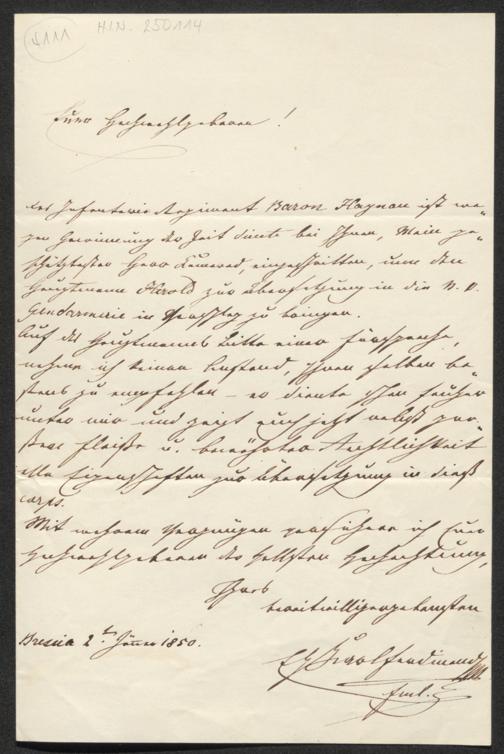 4111
H.I.N. 250114
Euer Hochwohlgeboren !
das Infanterie Regiment Baron Haynau ist we-
gen Gewinnung der Zeit directe bei Ihnen, Mein ge-
schätztester Herr Kamerad, eingeschritten, um den
Hauptmann Harold zur Übersetzung in die
Gendarmerie in Vorschlag zu bringen.
Auf des Hauptmanns Bitte einer Fürsprache,
nehme ich keinen Anstand, Ihnen selben be-
stens zu empfehlen – er diente schon früher
unter mir und zeigt auch jetzt nebst gro-
ßem Fleiße u. bewährter Rechtlichkeit
alle Eigenschaften zur Übersetzung in dieß
Corps.
Mit wahrem Vergnügen versichere ich Euer
Hochwohlgeboren der vollsten Hochachtung,
Ihres
bereitwilligergebensten
Brescia 2ten Jänner 1850.
EH Karl Ferdinand
Fml.